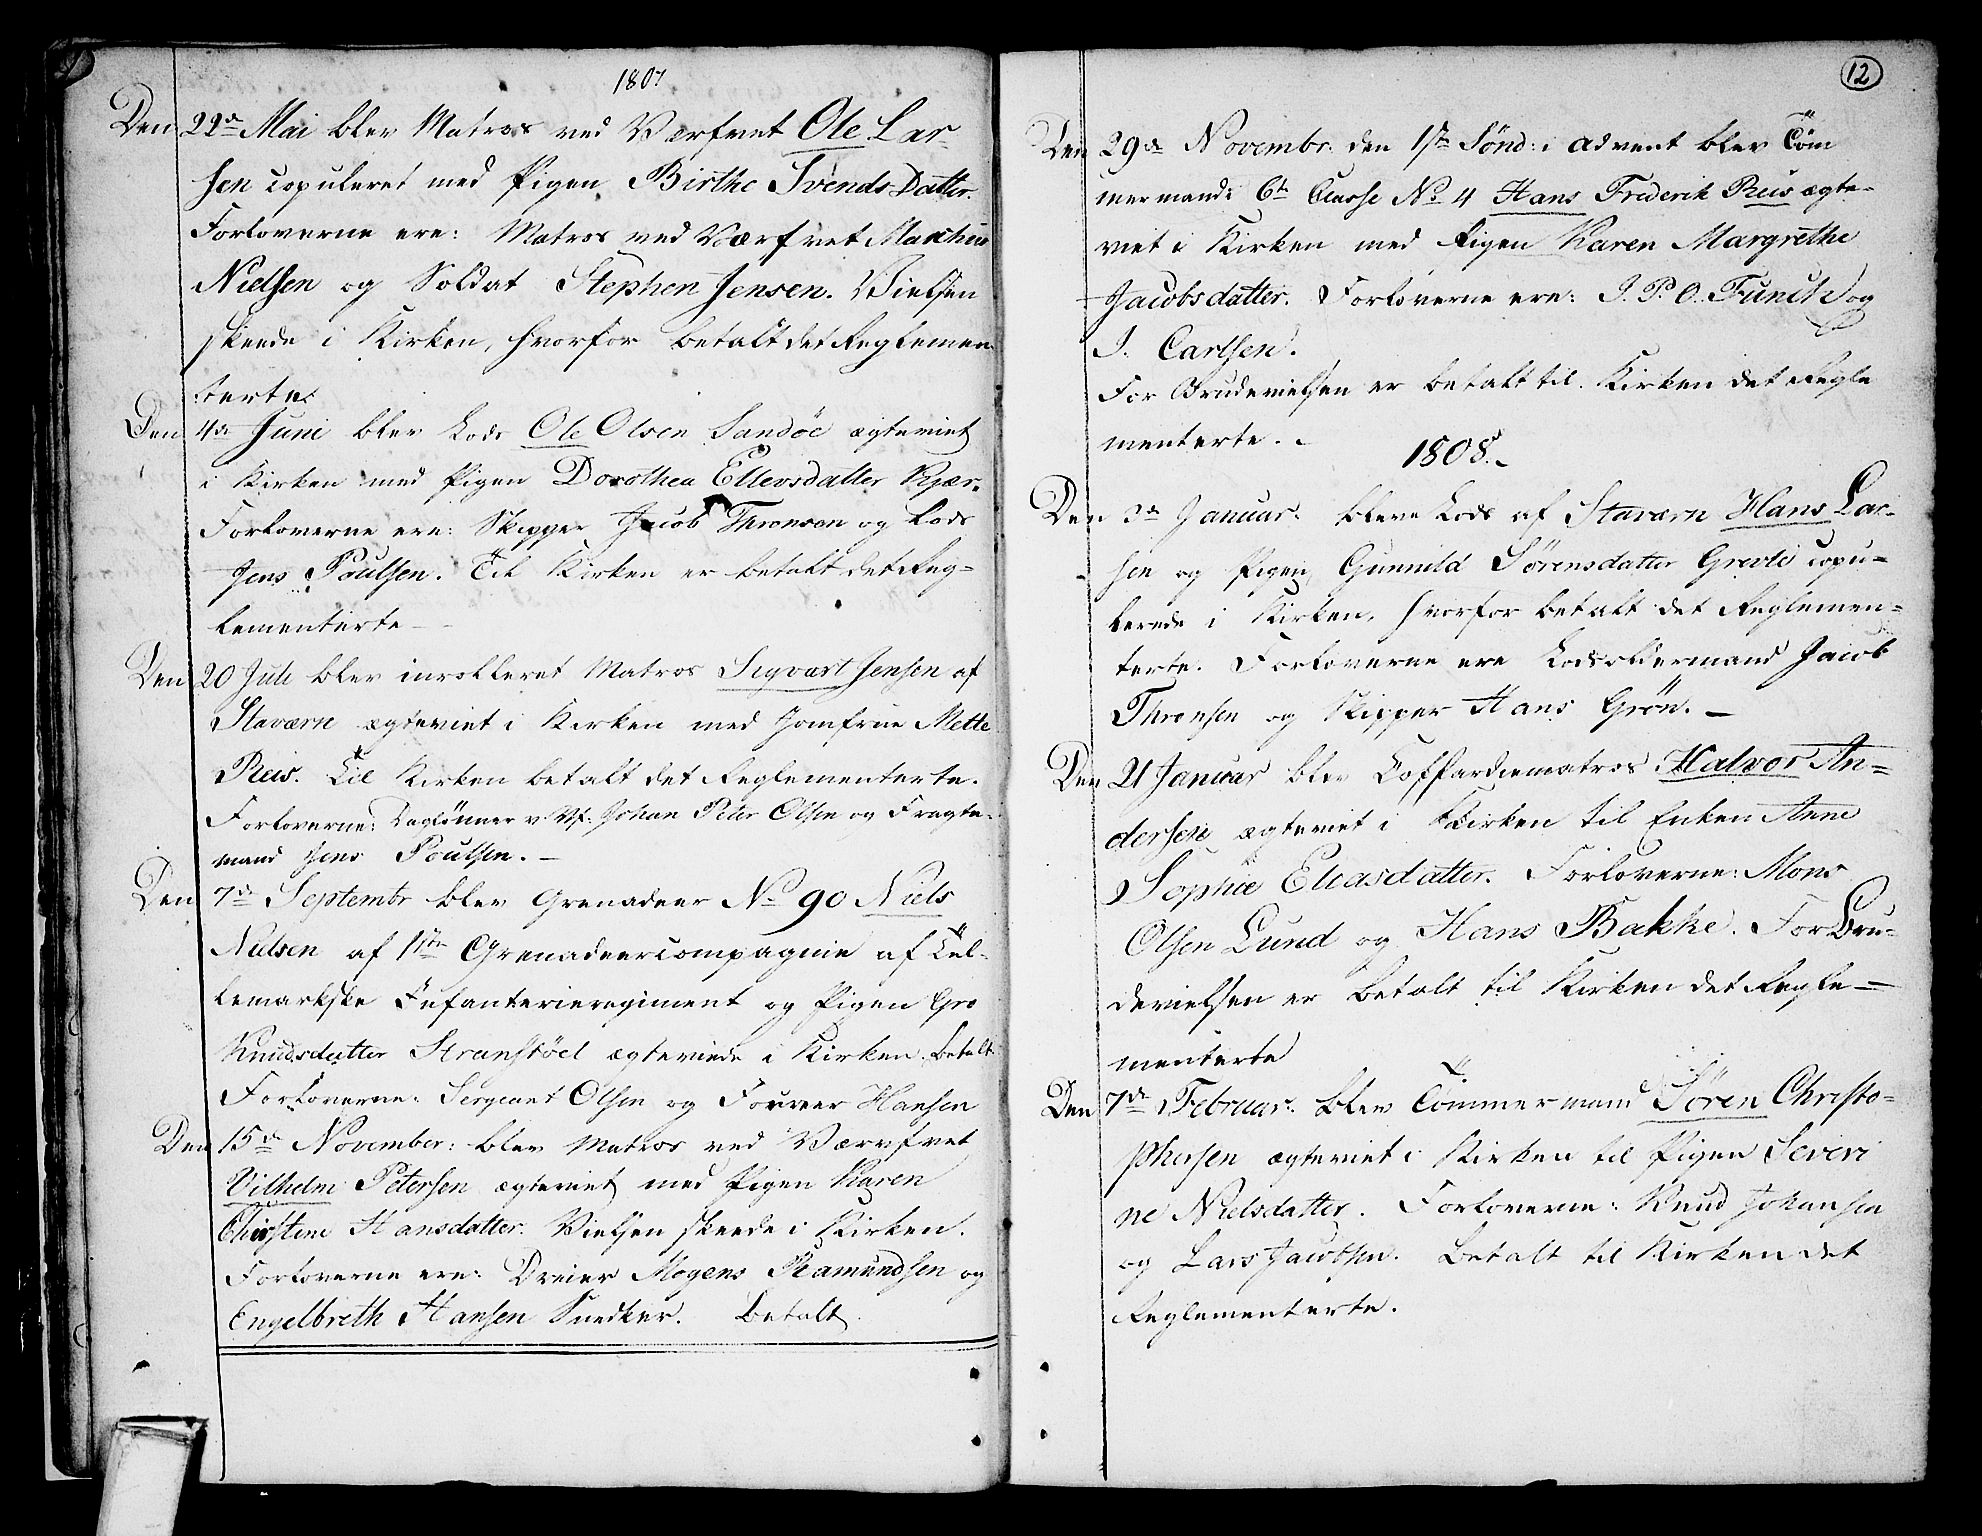 1807
Den 22de Mai blev Matros ved Værfvet Ole Lar-
sen copuleret med Pigen Birthe Svends-Datter.
Forloverne ere: Matros ved Værfvet
Nielsen og Soldat Stephen Jensen. Vielsen
skeede i Kirken, hvorfor betalt det Reglemen
terte.
Den 4de Juni blev Lods Ole Olsen Sandöe ægteviet
i Kirken med Pigen Dorothea Ellevsdatter Kjær.
Forloverne ere: Skipper Jacob Thronsen og Lods
Jens Poulsen. Til Kirken er betalt det Reg-
lementerte
Den 20 Juli blev inrolleret Matros Sigvart Jensen af
Staværn ægteviet i Kirken med Jomfrue Mette
Reis. Til Kirken betalt det Reglementerte.
Forloverne: Daglönner v. Vf: Johan Peter Olsen og Fragte-
mand Jens Poulsen. –
Den 7de Septembr blev Grenadeer No 90 Niels
Nielsen af 1ste Grenadeercompagnie af Tel-
lemarkske Infanterieregiment og Pigen Gro
Knudsdatter ægteviede i Kirken. Betalt
Forloverne: Sergeant Olsen og Foureer Hansen
Den 15de November: blev Matros ved Værvfvet
Vilhelm Petersen ægteviet med Pigen Karen
Christine Hansdatter. Vielsen skeede i Kirken.
Forloverne ere: Dreier Mogens Ramundsen og
Engelbreth Hansen Snedker. Betalt.
12
Den 29de Novembr: den 1ste Sönd: i advent blev Töm
mermand: 6te Classe No 4 Hans Frederik Reis ægte-
viet i Kirken med Pigen Karen Margrethe
Jacobsdatter. Forloverne ere: J. P. O. Funch og
J. Carlsen.
For Brudevielsen er betalt til Kirken det Regle
menterte. –
1808. –
Den 3de Januar: bleve Lods af Staværn Hans Lar-
sen og Pigen Gunnild Sörensdatter Grevle copu-
lerede i Kirken, hvorfor betalt det Reglemen-
terte. Forloverne ere Lodsoldermand Jacob
Thronsen og Skipper Hans Grön. –
Den 21 Januar blev Coffardiematros Halvor An-
dersen ægteviet i Kirken til Enken Anne
Sophie Eliasdatter. Forloverne: Mons
Olsen Lund og Hans Bakke. For Bru-
devielsen er betalt til Kirken det Regle-
menterte
Den 7de Februar: blev Tömmermand Sören Christo-
phersen ægteviet i Kirken til Pigen Severi
ne Nielsdatter. Forloverne: Knud Johansen
og Lars Jacobsen. Betalt til Kirken det
Reglementerte.